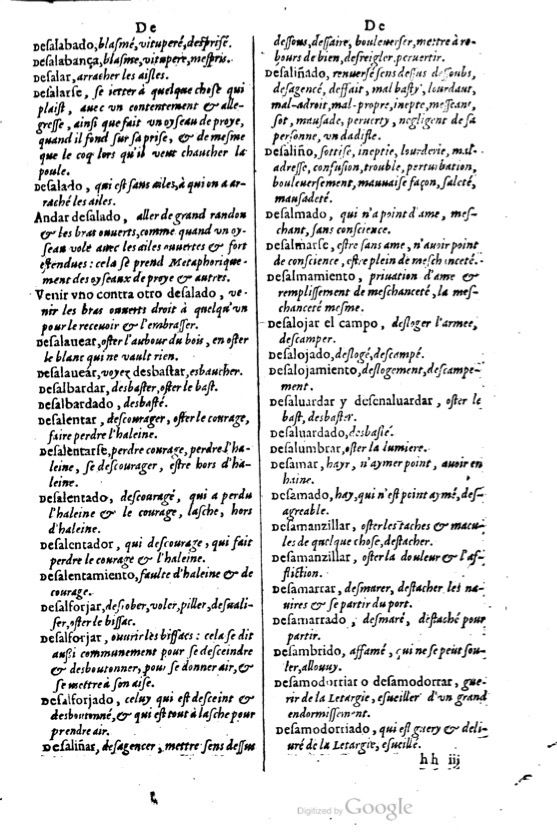 De
Desalabado, blasmé, vituperé, desprisé.
Desalabança, blasme, vitupere, mespris.
Desalar, arracher les aisles.
Desalarse, se ietter à quelque chose qui
plaist, auec vn contentement & alle-
gresse, ainsi que fait vn oyseau de proye,
quand il fond sur sa prise, & de mesme
que le coq lors qu'il veut chaucher la
poule.
Desalado, qui est sans aisles, à qui on a ar-
raché les ailes.
Andar desalado, aller de grand randon
& les bras ouuerts, comme quand vn oy-
seau vole auec les ailes ouuertes & fort
estendues : cela se prend Metaphorique-
ment des oyseaux de proye & autres.
Venir vno contra otro desalado, ve-
nir les bras ouuerts droit à quelqu'vn
pour le receuoir & l'embrasser.
Desalauear, oster l'aubour du bois, en oster
le blanc qui ne vault rien.
Desalauear, voyez desbastar, esbaucher.
Desalbardar, desbaster, oster le bast.
Desalbardado, desbasté.
Desalentar, descourager, oster le courage,
faire perdre l'haleine.
Desalentarse, perdre courage, perdre l'ha-
leine, se descourager, estre hors d'ha-
leine.
Desalentado, descouragé, qui a perdu
l'haleine & le courage, lasche, hors
d'haleine.
Desalentador, qui descourage, qui fait
perdre le courage & l'haleine.
Desalentamiento, faulte d'haleine & de
courage.
Desalforjar, desrober, voler, piller, desuali-
ser, oster le bissac.
Desalforjar, ouurir les bissacs : cela se dit
aussi communement pour se desceindre
& desboutonner, pour se donner air, &
se mettre à son aise.
Desalforjado, celuy qui est desceint &
desboutonné, & qui est tout à lasche pour
prendre air.
Desaliñar, desagencer, mettre sens dessus
De
dessous, deffaire, bouleuerser, mettre à re-
bours de bien, desreigler, peruertir.
Desaliñado, renuersé sens dessus dessoubs,
desagencé, deffait, mal basty, lourdaut,
mal-adroit, mal-propre, inepte, messeant,
sot, mausade, peruerty, negligent de sa
personne, vn dadiste.
Desaliño, sottise, ineptie, lourderie, mal-
adresse, confusion, trouble, perturbation,
bouleuersement, mauuaise façon, saleté,
mausadeté.
Desalmado, qui n'a point d'ame, mes-
chant, sans conscience.
Desalmarse, estre sans ame, n'auoir point
de conscience, estre plein de meschanceté.
Desalmamiento, priuation d'ame &
remplissement de meschanceté, la mes-
chanceté mesme.
Desalojar el campo, desloger l'armee,
descamper.
Desalojado, deslogé, descampé.
Desalojamiento, deslogement, descampe-
ment.
Desaluardar y desenaluardar, oster le
bast, desbaster.
Desaluardado, desbasté.
Desalumbrar, oster la lumiere.
Desamar, hayr, n'aymer point, auoir en
haine.
Desamado, hay, qui n'est point aymé, des-
agreable.
Desamanzillar, oster les taches & macu-
les de quelque chose, destacher.
Desamanzillar, oster la douleur & l'af-
fliction.
Desamarrar, desmarer, destacher les na-
uires & se partir du port.
Desamarrado, desmaré, destaché pour
partir.
Desambrido, affamé, qui ne se peut sou-
ler, allouuy.
Desamodorriar o desamodorrar, gue-
rir de la Letargie, esueiller d'un grand
endormissement.
Desamodorriado, qui est guery & deli-
uré de la Letargie, esueillé.
hh iij
Digitized by Google